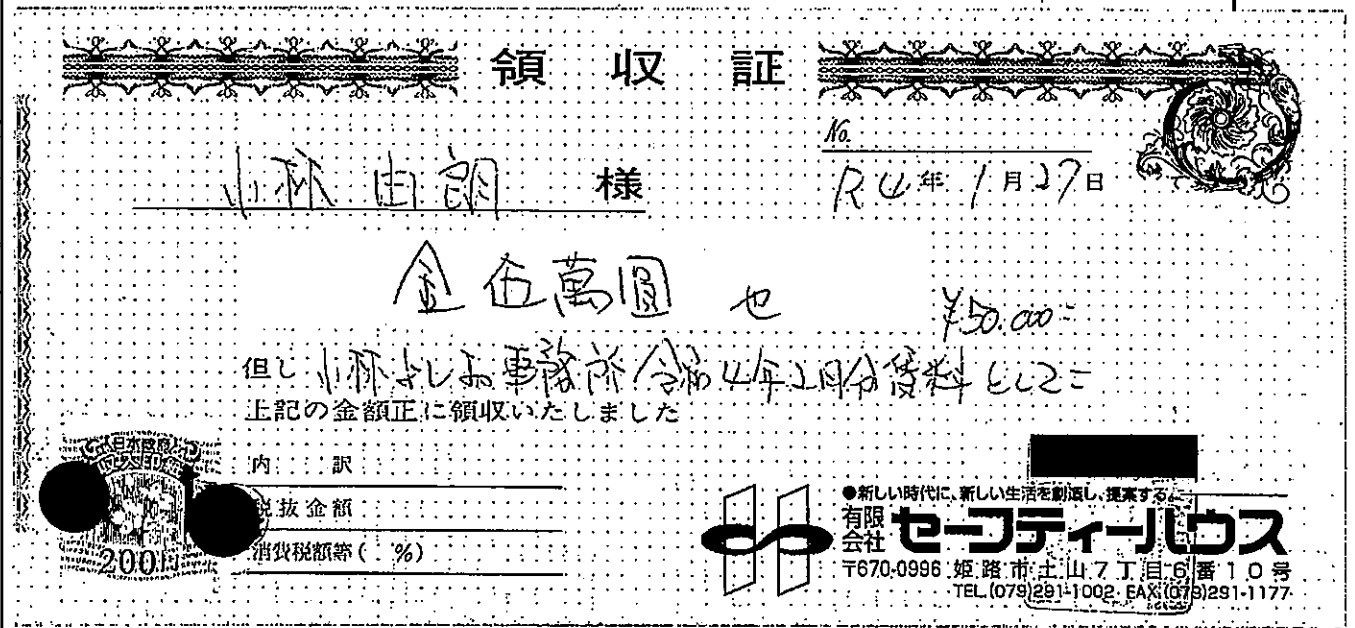 領収証
No.
小林由朗 様
R4年1月27日
金伍萬圓也
¥50.000-
但し 小林よしお事務所 令和4年2月分賃料として
上記の金額正に領収いたしました
日本政府
200円
内訳
税抜金額
消費税額等( %)
●新しい時代に、新しい生活を創造し、提案する。
有限会社 セーフティーハウス
〒670-0996 姫路市土山7丁目6番10号
TEL.(079)291-1002 FAX.(079)291-1177